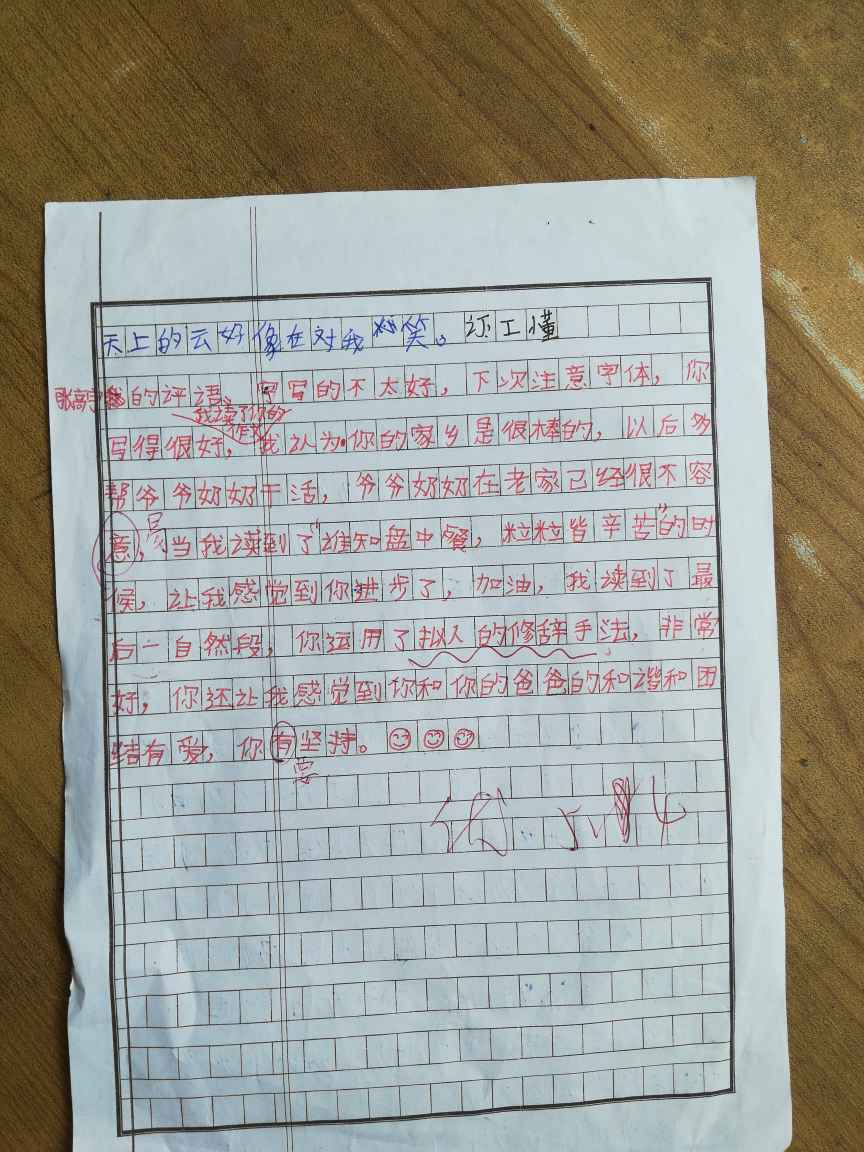 天上的云好像在对我笑。
的评语。字写的不太好，下次注意字体，你
我读了你的作文
写得很好，我认为你的家乡是很棒的，以后多
帮爷爷奶奶干活，爷爷奶奶在老家已经很不容
易
意，当我读到了“谁知盘中餐，粒粒皆辛苦”的时
候，让我感觉到你进步了，加油，我读到了最
后一自然段，你运用了拟人的修辞手法，非常
好，你还让我感觉到你和你的爸爸的和谐和团
结有爱，你有坚持。
要
优 5.14